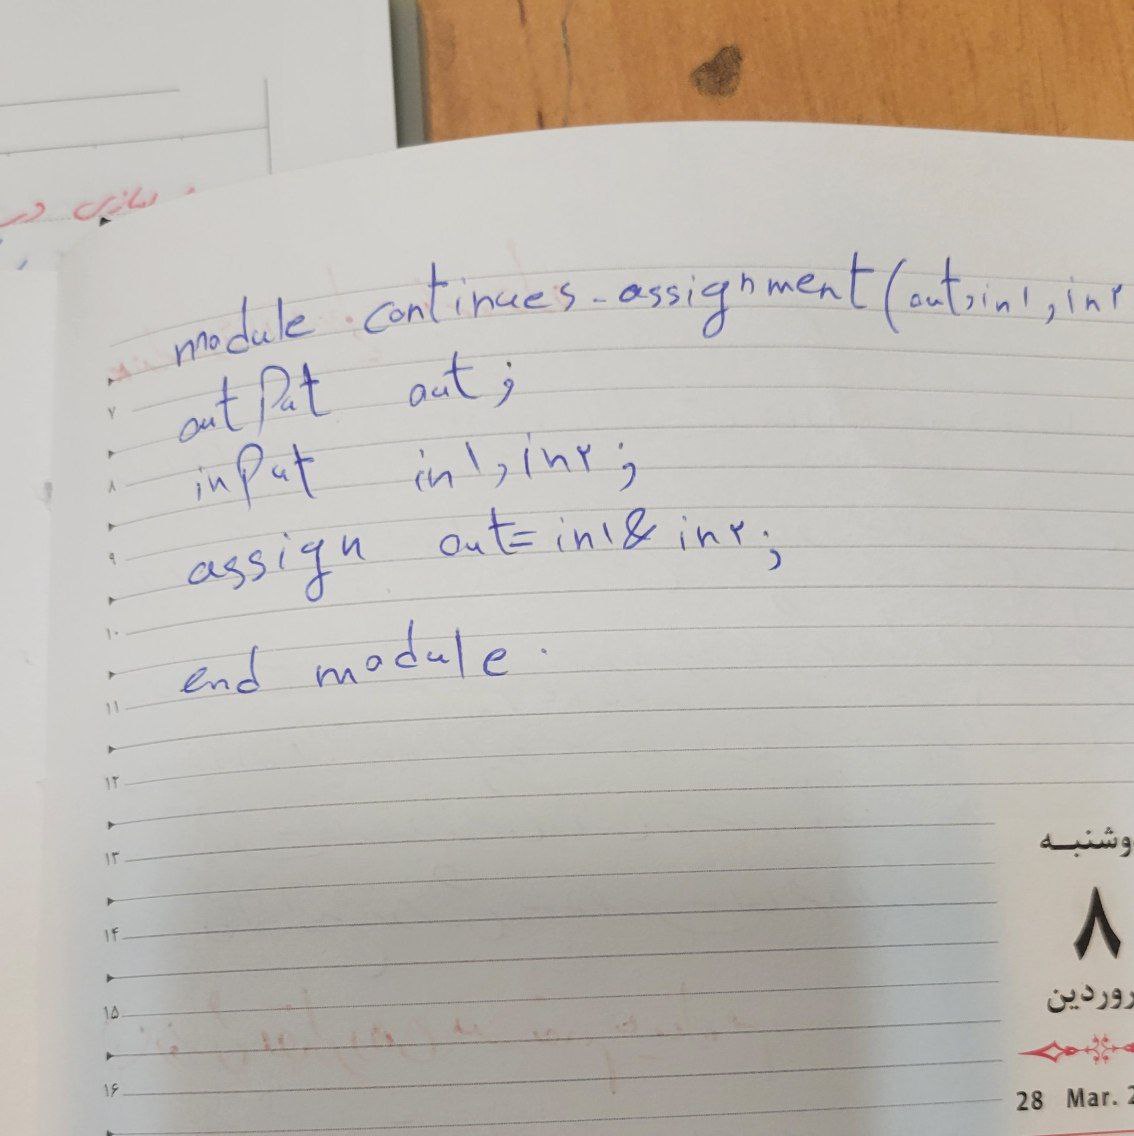 module continues-assignment(out,in۱,in۲
outPut out;
inPut in۱,in۲;
assign out=in۱&in۲;
end module.
۷
۸
۹
۱۰
۱۱
۱۲
۱۳
۱۴
۱۵
۱۶
وشنبه
۸
روردین
28 Mar. 2